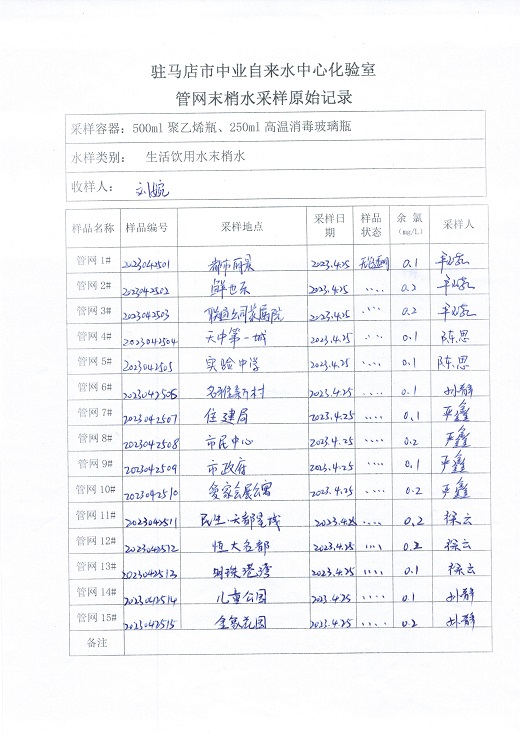 驻马店市中业自来水中心化验室
管网末梢水采样原始记录
采样容器：500ml 聚乙烯瓶、250ml 高温消毒玻璃瓶
水样类别： 生活饮用水末梢水
收样人： 刘婉
样品名称 样品编号 采样地点 采样日期 样品状态 余 氯（mg/L） 采样人
管网 1# 2023042501 都市丽景 2023.4.25 无色透明 0.1
管网 2# 2023042502 2023.4.25 〃 0.2
管网 3# 2023042503 2023.4.25 〃 0.2
管网 4# 2023042504 天中第一城 2023.4.25 〃 0.1 陈思
管网 5# 2023042505 实验中学 2023.4.25 〃 0.1 陈思
管网 6# 2023042506 名雅新村 2023.4.25 〃 0.1 孙静
管网 7# 2023042507 住建局 2023.4.25 〃 0.1 严鑫
管网 8# 2023042508 市民中心 2023.4.25 〃 0.2 严鑫
管网 9# 2023042509 市政府 2023.4.25 〃 0.1 严鑫
管网 10# 2023042510 爱家会展公寓 2023.4.25 〃 0.2 严鑫
管网 11# 2023042511 民生·天都星城 2023.4.25 〃 0.2 徐云
管网 12# 2023042512 恒大名都 2023.4.25 〃 0.2 徐云
管网 13# 2023042513 明珠港湾 2023.4.25 〃 0.1 徐云
管网 14# 2023042514 儿童公园 2023.4.25 〃 0.1 孙静
管网 15# 2023042515 金象花园 2023.4.25 〃 0.2 孙静
备注